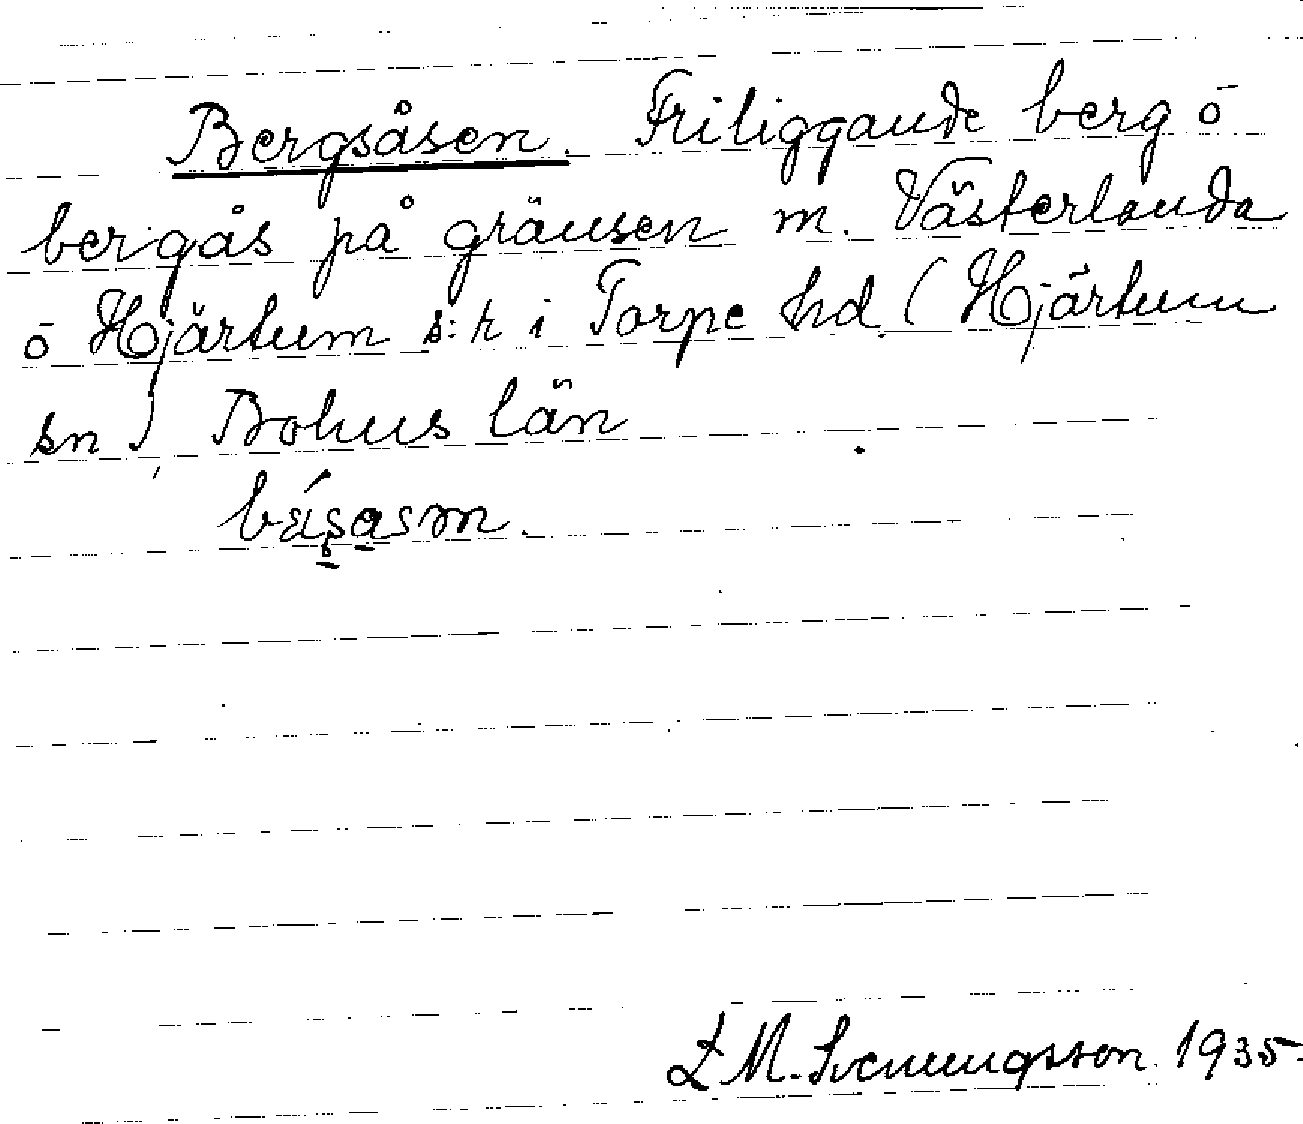 Bergsåsen. Friliggande berg o
bergås på gränsen m. Västerlanda
o Hjärtum s:r i Torpe hd (Hjärtum
sn) Bohus län
M. Svenungsson 1935.